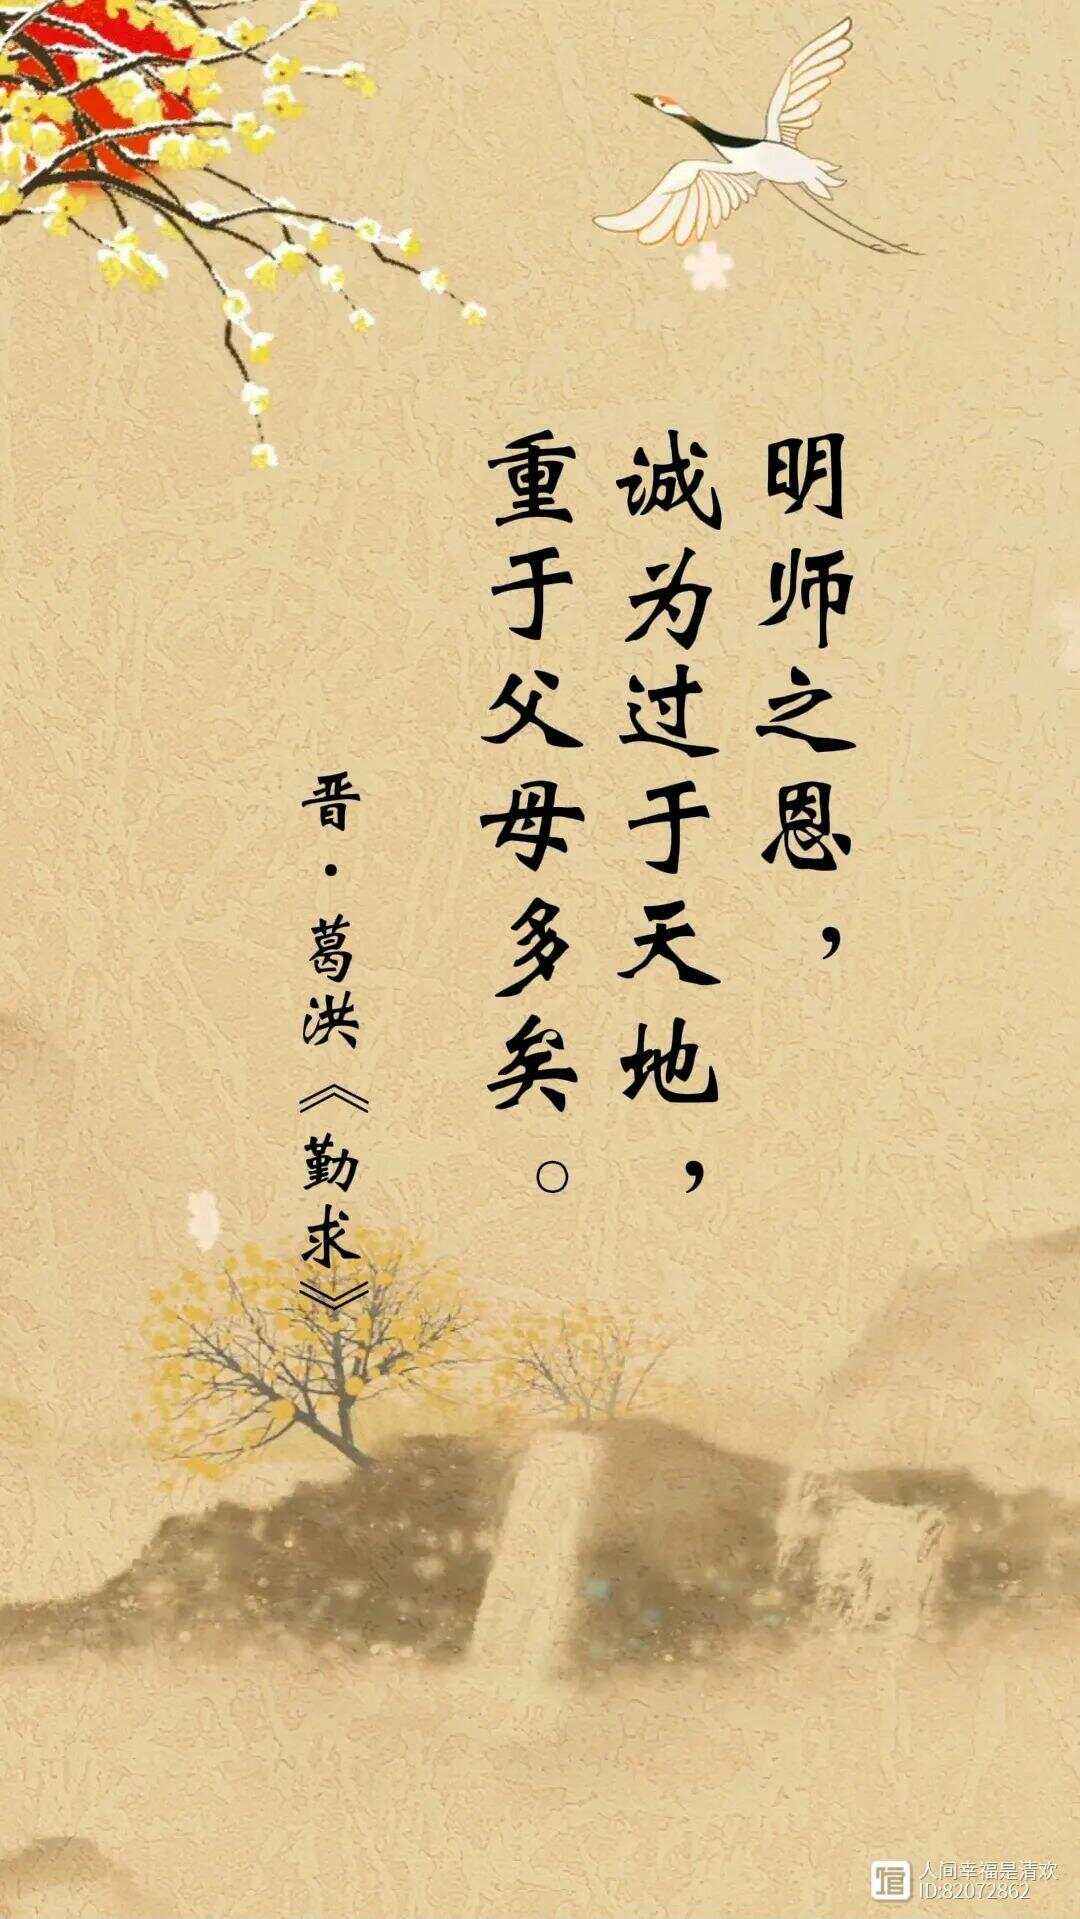 明师之恩，
诚为过于天地，
重于父母多矣。
晋·葛洪《勤求》
人间幸福是清欢
ID:82072862